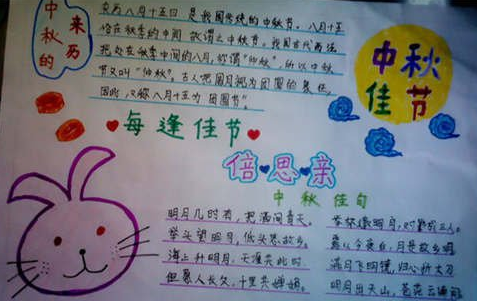 中秋的来历
农历八月十五日 是我国传统的中秋节。八月十五
恰在秋季的中间 故谓之中秋节。我国古代
把处在秋季中间的八月，称谓“仲秋”，所以中秋
节又叫“仲秋”。古人把圆月视为团圆的象征，
因此，又称八月十五为“团圆节”。
中秋
佳节
每逢佳节
倍思亲
中秋佳句
明月几时有，把酒问青天。
举头望明月，低头思故乡。
海上升明月，天涯共此时
但愿人长久，千里共婵娟。
举杯邀明月，对影成三人。
露从今夜白，月是故乡明
满月飞明镜，归心折大刀
明月出天山，苍茫云海间